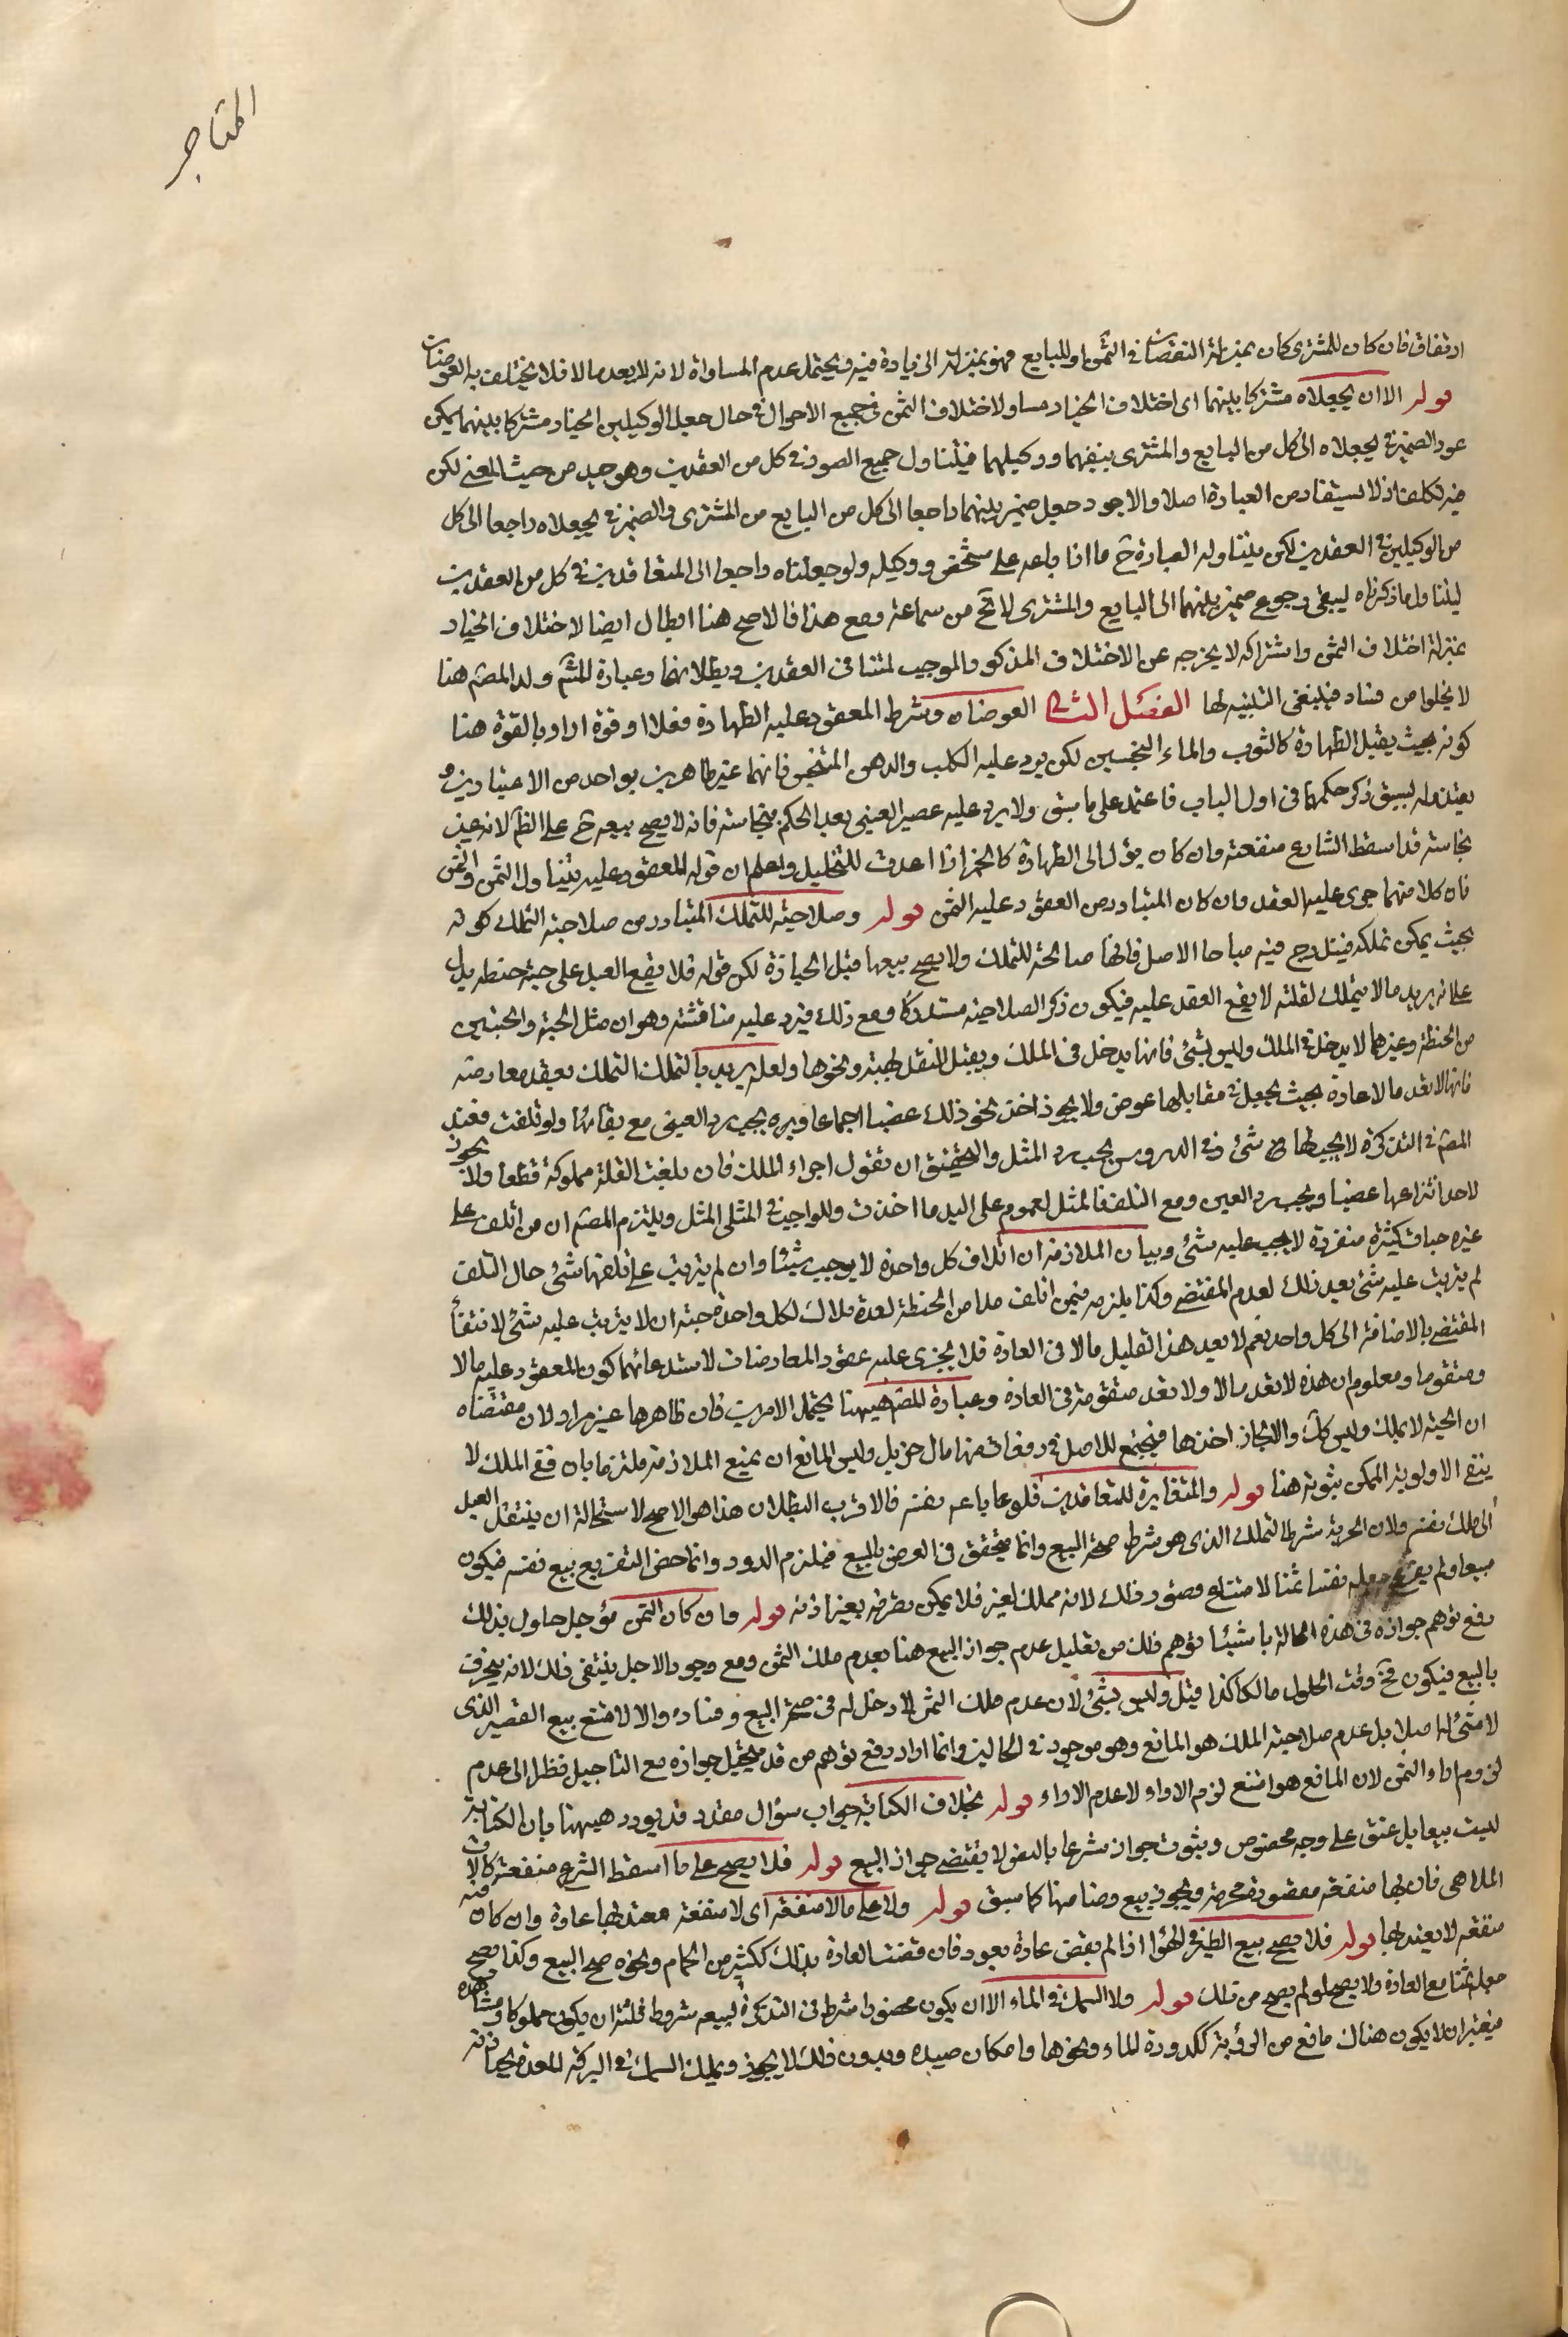 المتاجر
ارتفاق فان كان للمشترى كان بمنزلة النقصان فى الثمن او للبايع فهو بمنزلة الى زيادة فيه ويحتمل عدم المساواة لانه لا يعد مالا فلا يختلف به العوضان
قوله الا ان يجعلاه مشتركا بينهما اى اختلاف الخيار مساو لاختلاف الثمن فى جميع الاحوال الا فى حال جعل الوكيلين الخيار مشتركا بينهما يمكن
عود الضمير فى يجعلاه الى كل من البايع والمشترى بنفسهما ووكيلهما فيتناول جميع الصور فى كل من العقدين وهو جيد من حيث المعنى لكن
فيه تكلف اذ لا يستفاد من العبارة اصلا والاجود جعل ضمير بينهما راجعا الى كل من البايع من المشترى والضمير فى يجعلاه راجعا الى كل
من الوكيلين فى العقدين لكن يتناوله العبارة ح ما اذا باعه على شخص ووكيله ولو جعلناه راجعا الى المتعاقدين فى كل من العقدين
ليتناول ما ذكرناه ليبقى رجوع ضمير بينهما الى البايع والمشترى لا تخ من سماجة ومع هذا فالاصح هنا ابطال ايضا لاختلاف الخيار
بمنزلة اختلاف الثمن واشتراكه لا يخرجه عن الاختلاف المذكور الموجب لتنافى العقدين وبطلانهما وعبارة الشم ولد المصم هنا
لا يخلوا من فساد فينبغى التنبيه لها الفصل الثالث العوضان وشرط المعقود عليه الطهارة فعلا او قوة اراد بالقوة هنا
كونه بحيث يقبل الطهارة كالثوب والماء النجسين لكن يرد عليه الكلب والدهن المتنجس فانهما غير طاهرين بواحد من الاعتبارين و
يعتذر له بسبق ذكر حكمهما فى اول الباب فاعتمد على ما سبق ولا يرد عليه عصير العنبى بعد الحكم بنجاسته فانه لا يصح بيعه ح على الظ لانه عين
نجاسته قد اسقط الشارع منفعته وان كان يؤل الى الطهارة كالخمر اذا اعدت للتخليل واعلم ان قوله المعقود عليه يتناول الثمن والمثمن
فان كلا منهما جرى عليه العقد وان كان المتبادر من المعقود عليه الثمن قوله وصلاحيته للتملك المتبادر من صلاحية التملك كونه
بحيث يمكن تملكه فيندرج فيه مباحا الاصل فانها صالحة للتملك ولا يصح بيعها قبل الحيازة لكن قوله فلا يقع العبد على حبة حنطه يدل
على انه يريد ما لا يتملك لقلته لا يقع العقد عليه فيكون ذكر الصلاحية مستدركا ومع ذلك فيرد عليه مناقشته وهو ان مثل الحبة والحبتين
من الحنطة وغيرهما لا يدخل فى الملك وليس بشئ فانها يدخل فى الملك ويقبل النقل بهبة ونحوها ولعله يريد بالتملك التملك بعقد معاوضة
فانها لا تعد مالا عادة بحيث يجعل فى مقابلها عوض ولا يجوز اخذ نحو ذلك غصبا اجماعا ويره يجب رد العين مع بقائها ولو تلفت فعند
المصم فى التذكرة لا يجب لها ح شئ وفى الدروس يجب رد المثل والتحقيق ان تقول اجراء الملك فان بلغت القلة مملوكة قطعا ولا يجوز
لاحد انتزاعها غصبا ويجب رد العين ومع التلف فالمثل لعموم على اليد ما اخذت وللواجب فى المثلى المثل ويلتزم المصم ان من اتلف على
غيره حبات كثيرة منفردة لا يجب عليه شئ وبيان الملازمة ان اتلاف كل واحدة لا يوجب شيئا وان لم يترتب على تلفها شئ حال التلف
لم يترتب عليه شئ بعد ذلك لعدم المقتضى وكذا يلزمه فيمن اتلف مدا من الحنطة لعدة ملاك لكل واحد حبة ان لا يترتب عليه شئ لانتفاء
المقتضى بالاضافة الى كل واحد نعم لا يعد هذا القليل مالا فى العادة فلا يجرى عليه عقود المعاوضات لاستدعائها كون المعقود عليه مالا
ومتقوما ومعلوم ان هذه لا تعد مالا ولا تعد متقومة فى العادة وعبارة المصم هيهنا يحتمل الامرين فان ظاهرها غير مراد لان مقتضاه
ان الحبة لا يملك وليس كك والا لجاز اخذها فيجتمع للاصل فى دفعات منها مال جزيل وليس المانع ان يمنع الملازمة ملتزما بان نفى الملك لا
ينفى الاولوية الممكن ثبوته هنا قوله والمتغايرة للمتعاقدين فلو عا باعه نفسه فالاقرب البطلان هذا هو الاصح لاستحالة ان ينتقل العبد
الى ملك نفسه ولان الحرية شرط التملك الذى هو شرط صحة البيع وانما يتحقق فى العرض بالبيع فيلزم الدور وانما خص التفريع ببيع نفسه فيكون
مبيعا ولم يفرع جعله نفسا ثمنا لامتناع وصور ذلك لانه مملك لغيره فلا يمكن تصرفه بغير اذنه قوله وان كان الثمن مؤجل حاول بذلك
دفع توهم جوازه فى هذه الحالة با شيئا توهم ذلك من تعليل عدم جواز البيع هنا بعدم ملك الثمن ومع وجود الاجل ينتفى ذلك لانه يحرف
بالبيع فيكون فى وقت الحلول مالكا كذا قيل وليس بشئ لان عدم ملك الثمن لا دخل له فى صحة البيع وفساده والا لامتنع بيع الفقير الذى
لا شئ له اصلا بل عدم صلاحية الملك هو المانع وهو موجود فى الحالين وانما اراد دفع توهم من قد يتخيل جوازه مع التاجيل فظر الى عدم
لزوم اداء الثمن لان المانع هو امتنع لزوم الاداء لا عدم الاداء قوله بخلاف الكتابة جواب سؤال مقدر قد يورد هيهنا بان الكتابة
ليست بيعا بل عتق على وجه مخصوص وثبوت جوازه شرعا بالنص لا يقتضى جواز البيع قوله فلا يصح على ما اسقط الشرع منفعته كالات
الملاهى فان لها منفعة مقصودة محرمة ويجوز بيع رضاضها كما سبق قوله ولا على ما لا منفعة فيه اى لا منفعة معتد بها عادة وان كان
منفعة لا يعتد بها قوله فلا يصح بيع الطير فى الهوا اذا لم يقض عادة بعود فان قضت العادة بذلك ككثير من الحمام ونحوه صح البيع وكذا يصح
جعله ثمنا مع العادة ولا يصح لو لم يصح من تلك قوله ولا السمك فى الماء الا ان يكون محصورا شرط فى التذكرة لبيعه شروطا ثلثة ان يكون مملوكا ومشاهده
فيعتبر ان لا يكون هناك مانع من الرؤية ككدورة الماء ونحوها وامكان صيده وبدون ذلك لا يجوز ويملك السمك فى البركة المعدة